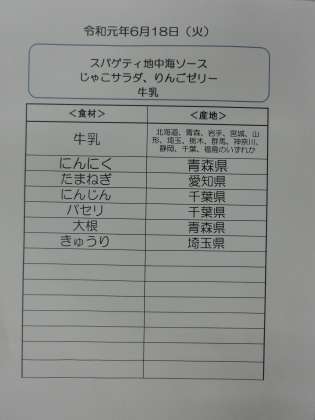 令和元年6月18日（火）
スパゲティ地中海ソース
じゃこサラダ、りんごゼリー
牛乳
＜食材＞ ＜産地＞
牛乳 北海道、青森、岩手、宮城、山
形、埼玉、栃木、群馬、神奈川、
静岡、千葉、福島のいずれか
にんにく 青森県
たまねぎ 愛知県
にんじん 千葉県
パセリ 千葉県
大根 青森県
きゅうり 埼玉県